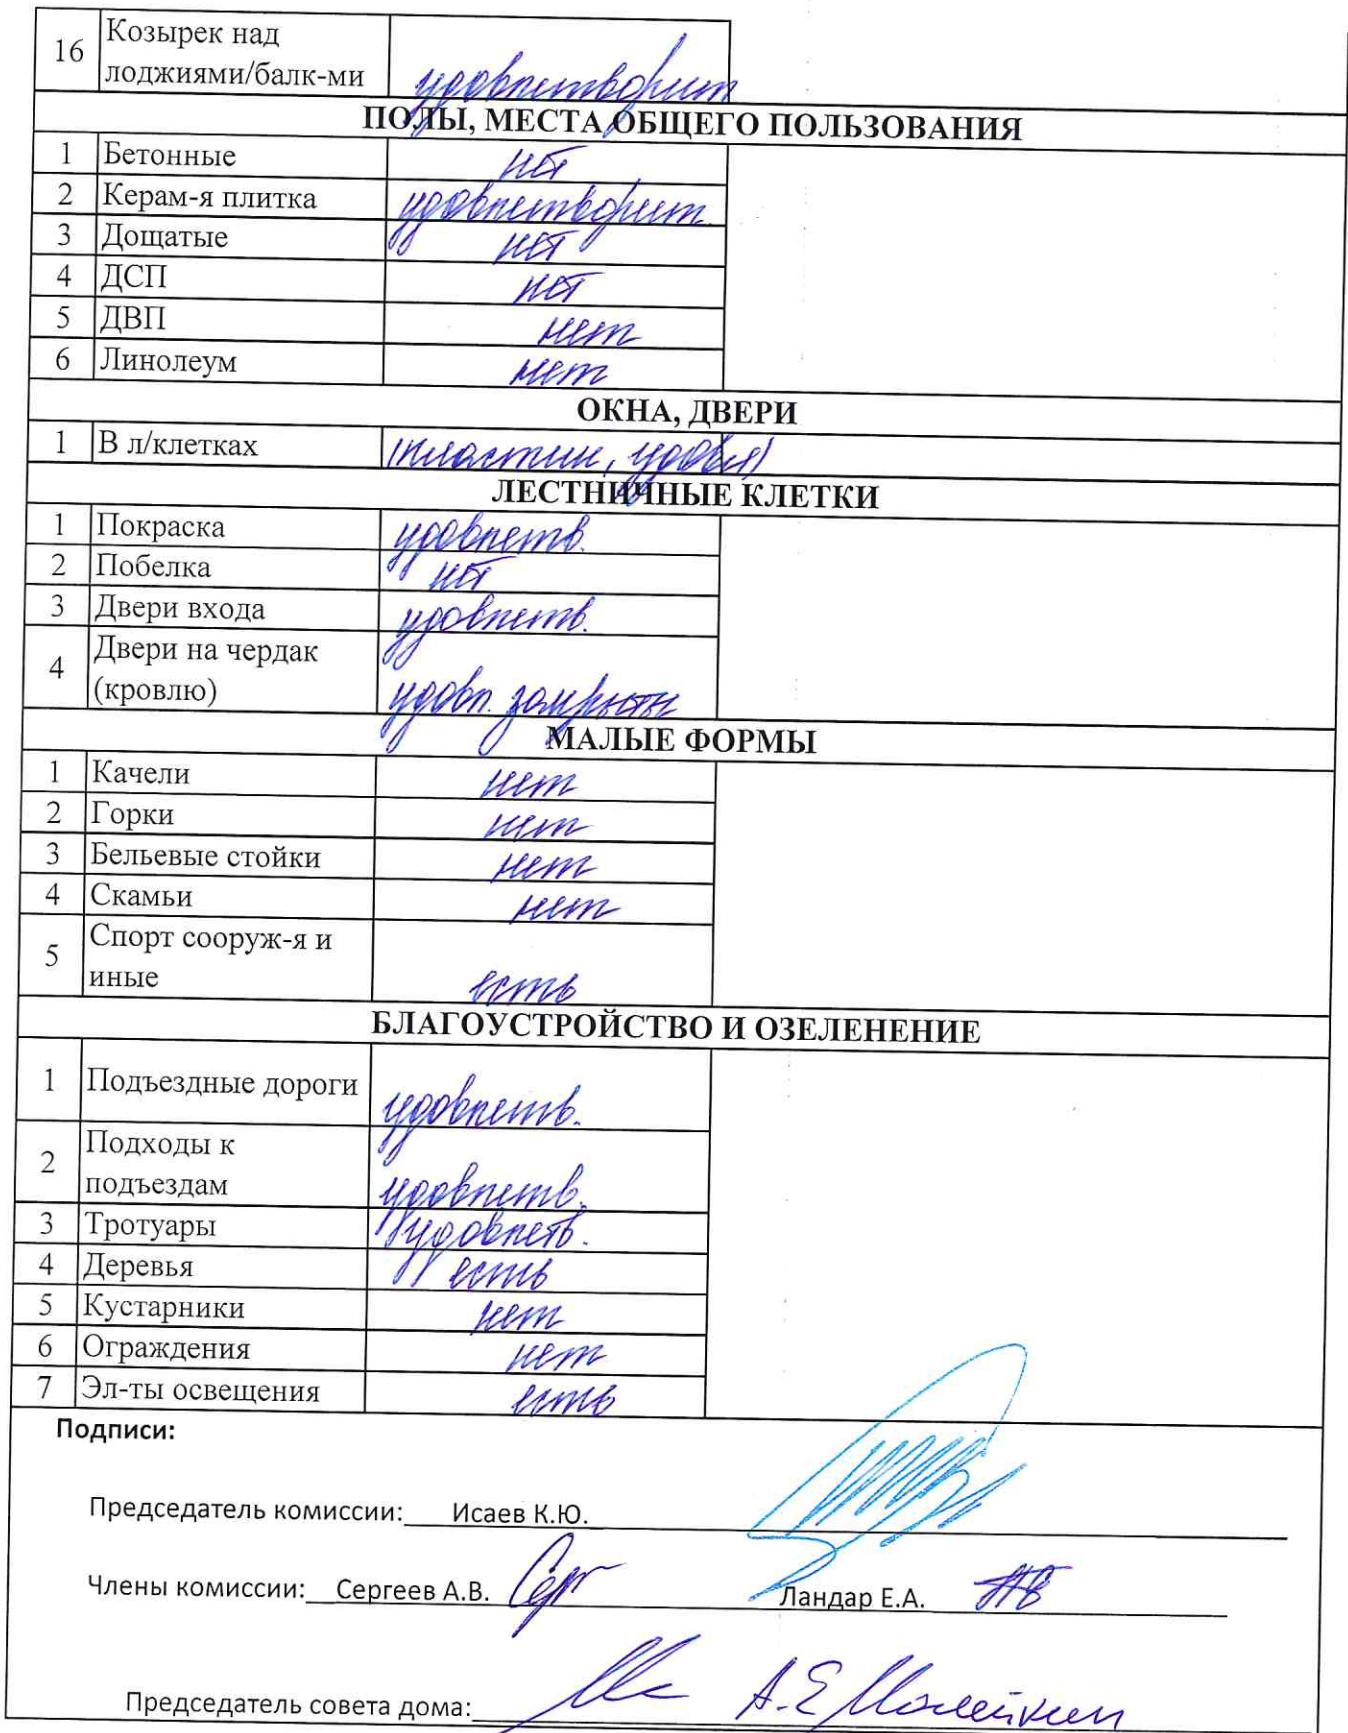 16 Козырек над
лоджиями/балк-ми удовлетворит
ПОЛЫ, МЕСТА ОБЩЕГО ПОЛЬЗОВАНИЯ
1 Бетонные нет
2 Керам-я плитка удовлетворит.
3 Дощатые нет
4 ДСП нет
5 ДВП нет
6 Линолеум нет
ОКНА, ДВЕРИ
1 В л/клетках (пластик, удовл)
ЛЕСТНИЧНЫЕ КЛЕТКИ
1 Покраска удовлетв.
2 Побелка нет
3 Двери входа удовлетв.
4 Двери на чердак
(кровлю) удовл. закрыты
МАЛЫЕ ФОРМЫ
1 Качели нет
2 Горки нет
3 Бельевые стойки нет
4 Скамьи нет
5 Спорт сооруж-я и
иные есть
БЛАГОУСТРОЙСТВО И ОЗЕЛЕНЕНИЕ
1 Подъездные дороги удовлетв.
2 Подходы к
подъездам удовлетв.
3 Тротуары удовлетв.
4 Деревья есть
5 Кустарники нет
6 Ограждения нет
7 Эл-ты освещения есть
Подписи:
Председатель комиссии: Исаев К.Ю.
Члены комиссии: Сергеев А.В. Ландар Е.А.
Председатель совета дома: А.Е